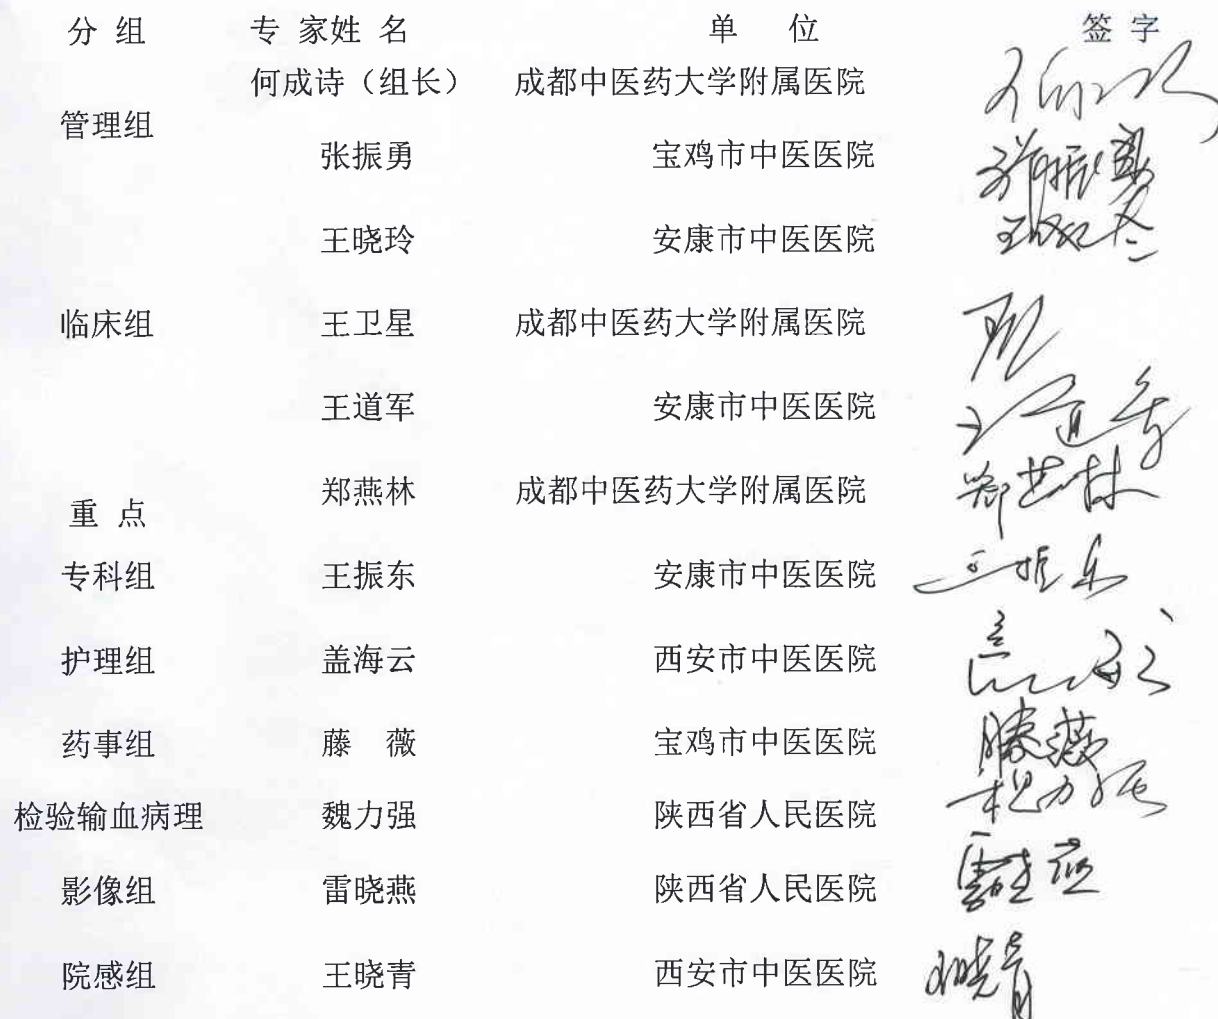 分 组 专 家姓 名 单 位 签 字
何成诗（组长） 成都中医药大学附属医院
管理组
张振勇 宝鸡市中医医院 张振勇
王晓玲 安康市中医医院 王晓玲
临床组 王卫星 成都中医药大学附属医院
王道军 安康市中医医院 王道军
郑燕林 成都中医药大学附属医院 郑燕林
重 点
专科组 王振东 安康市中医医院 王振东
护理组 盖海云 西安市中医医院
药事组 藤 薇 宝鸡市中医医院 滕薇
检验输血病理 魏力强 陕西省人民医院
影像组 雷晓燕 陕西省人民医院
院感组 王晓青 西安市中医医院 王晓青